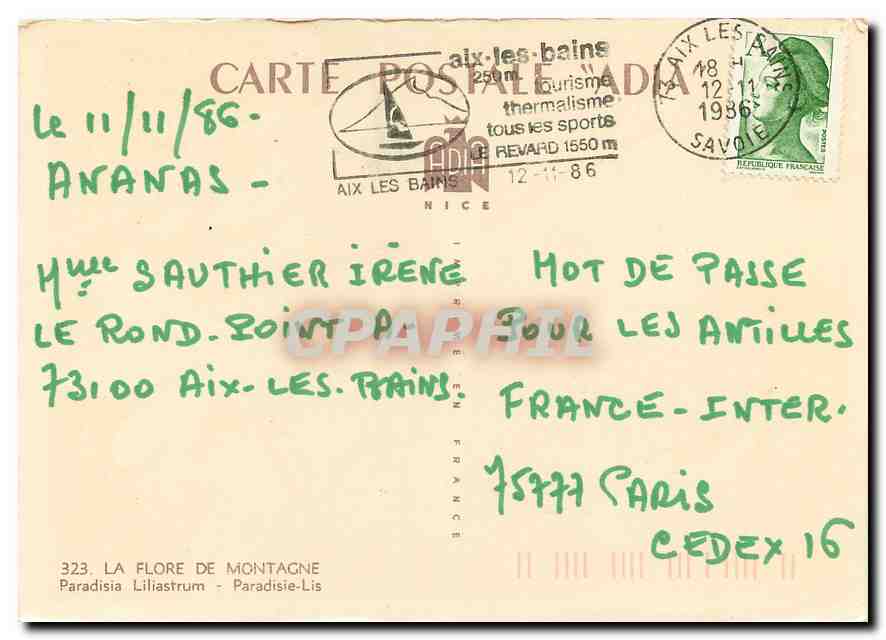 CARTE POSTALE "ADIA"
aix-les-bains
250m tourisme
thermalisme
tous les sports
LE REVARD 1550 m
AIX LES BAINS
12-11-86
73 AIX LES BAINS
18 H
12-11
1986
SAVOIE
A
POSTES
REPUBLIQUE FRANÇAISE
ADIA
NICE
IMPRIMÉ EN FRANCE
Le 11/11/86-
ANANAS -
Mme SAUTHIER IRÈNE
LE ROND-POINT A-
73100 AIX-LES-BAINS.
MOT DE PASSE
POUR LES ANTILLES
FRANCE-INTER.
75777 PARIS
CEDEX 16
CPAPHIL
323. LA FLORE DE MONTAGNE
Paradisia Liliastrum - Paradisie-Lis